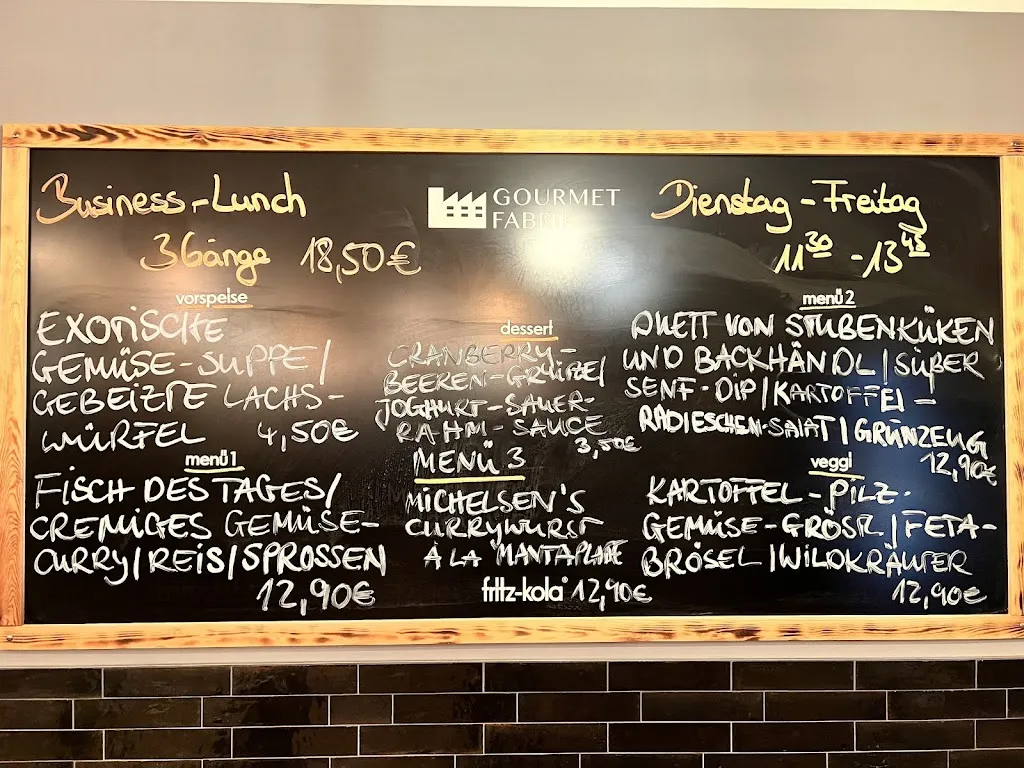 Business-Lunch
3 Gänge 18,50€
GOURMET
FABRIK
Dienstag - Freitag
11 30 - 13 45
vorspeise
EXOTISCHE
GEMÜSE-SUPPE/
GEBEIZTE LACHS-
WÜRFEL 4,50€
menü1
FISCH DES TAGES/
CREMIGES GEMÜSE-
CURRY/REIS/SPROSSEN
12,90€
dessert
CRANBERRY-
BEEREN-GRÜTZE/
JOGHURT-SAUER-
RAHM-SAUCE
3,50€
MENÜ 3
MICHELSEN'S
CURRYWURST
A LA MANTAPLATTE
fritz-kola 12,90€
menü2
DUETT VON STUBENKÜKEN
UND BACKHÄNDL/SÜßER
SENF-DIP/KARTOFFEL-
RADIESCHEN-SALAT/GRÜNZEUG
12,90€
veggi
KARTOFFEL-PILZ-
GEMÜSE-GRÖSTL/FETA-
BRÖSEL/WILDKRÄUTER
12,90€